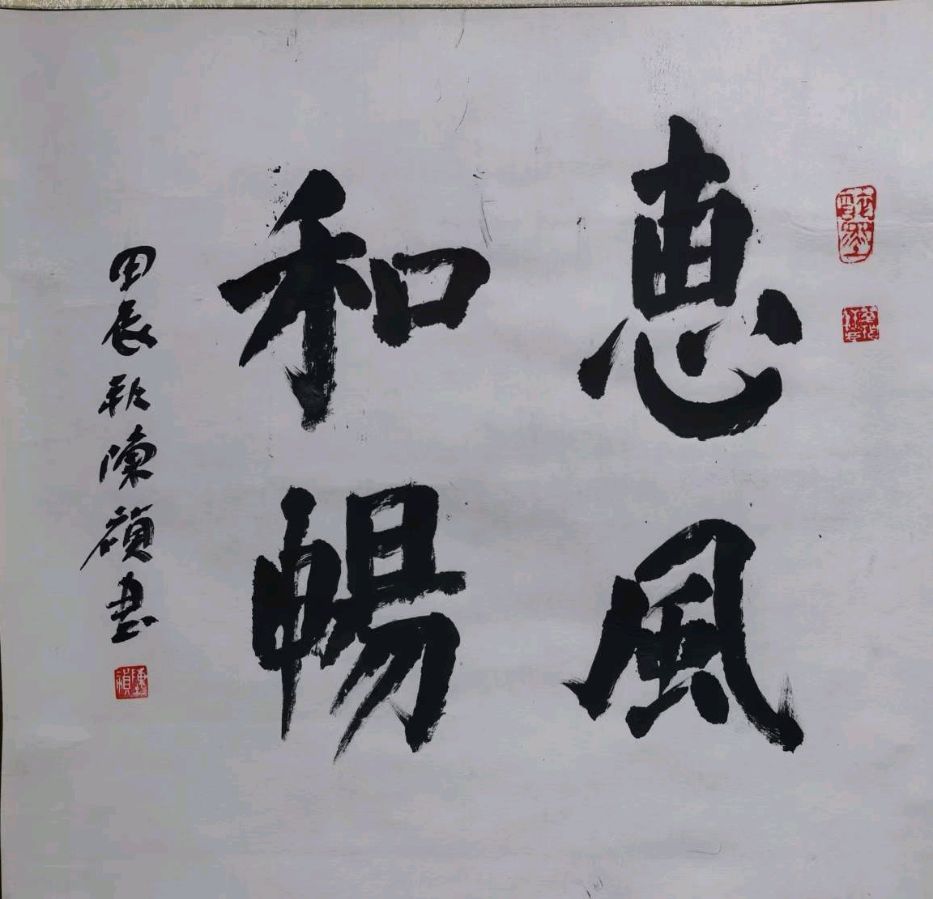 惠風
和暢
甲辰秋陳禎書